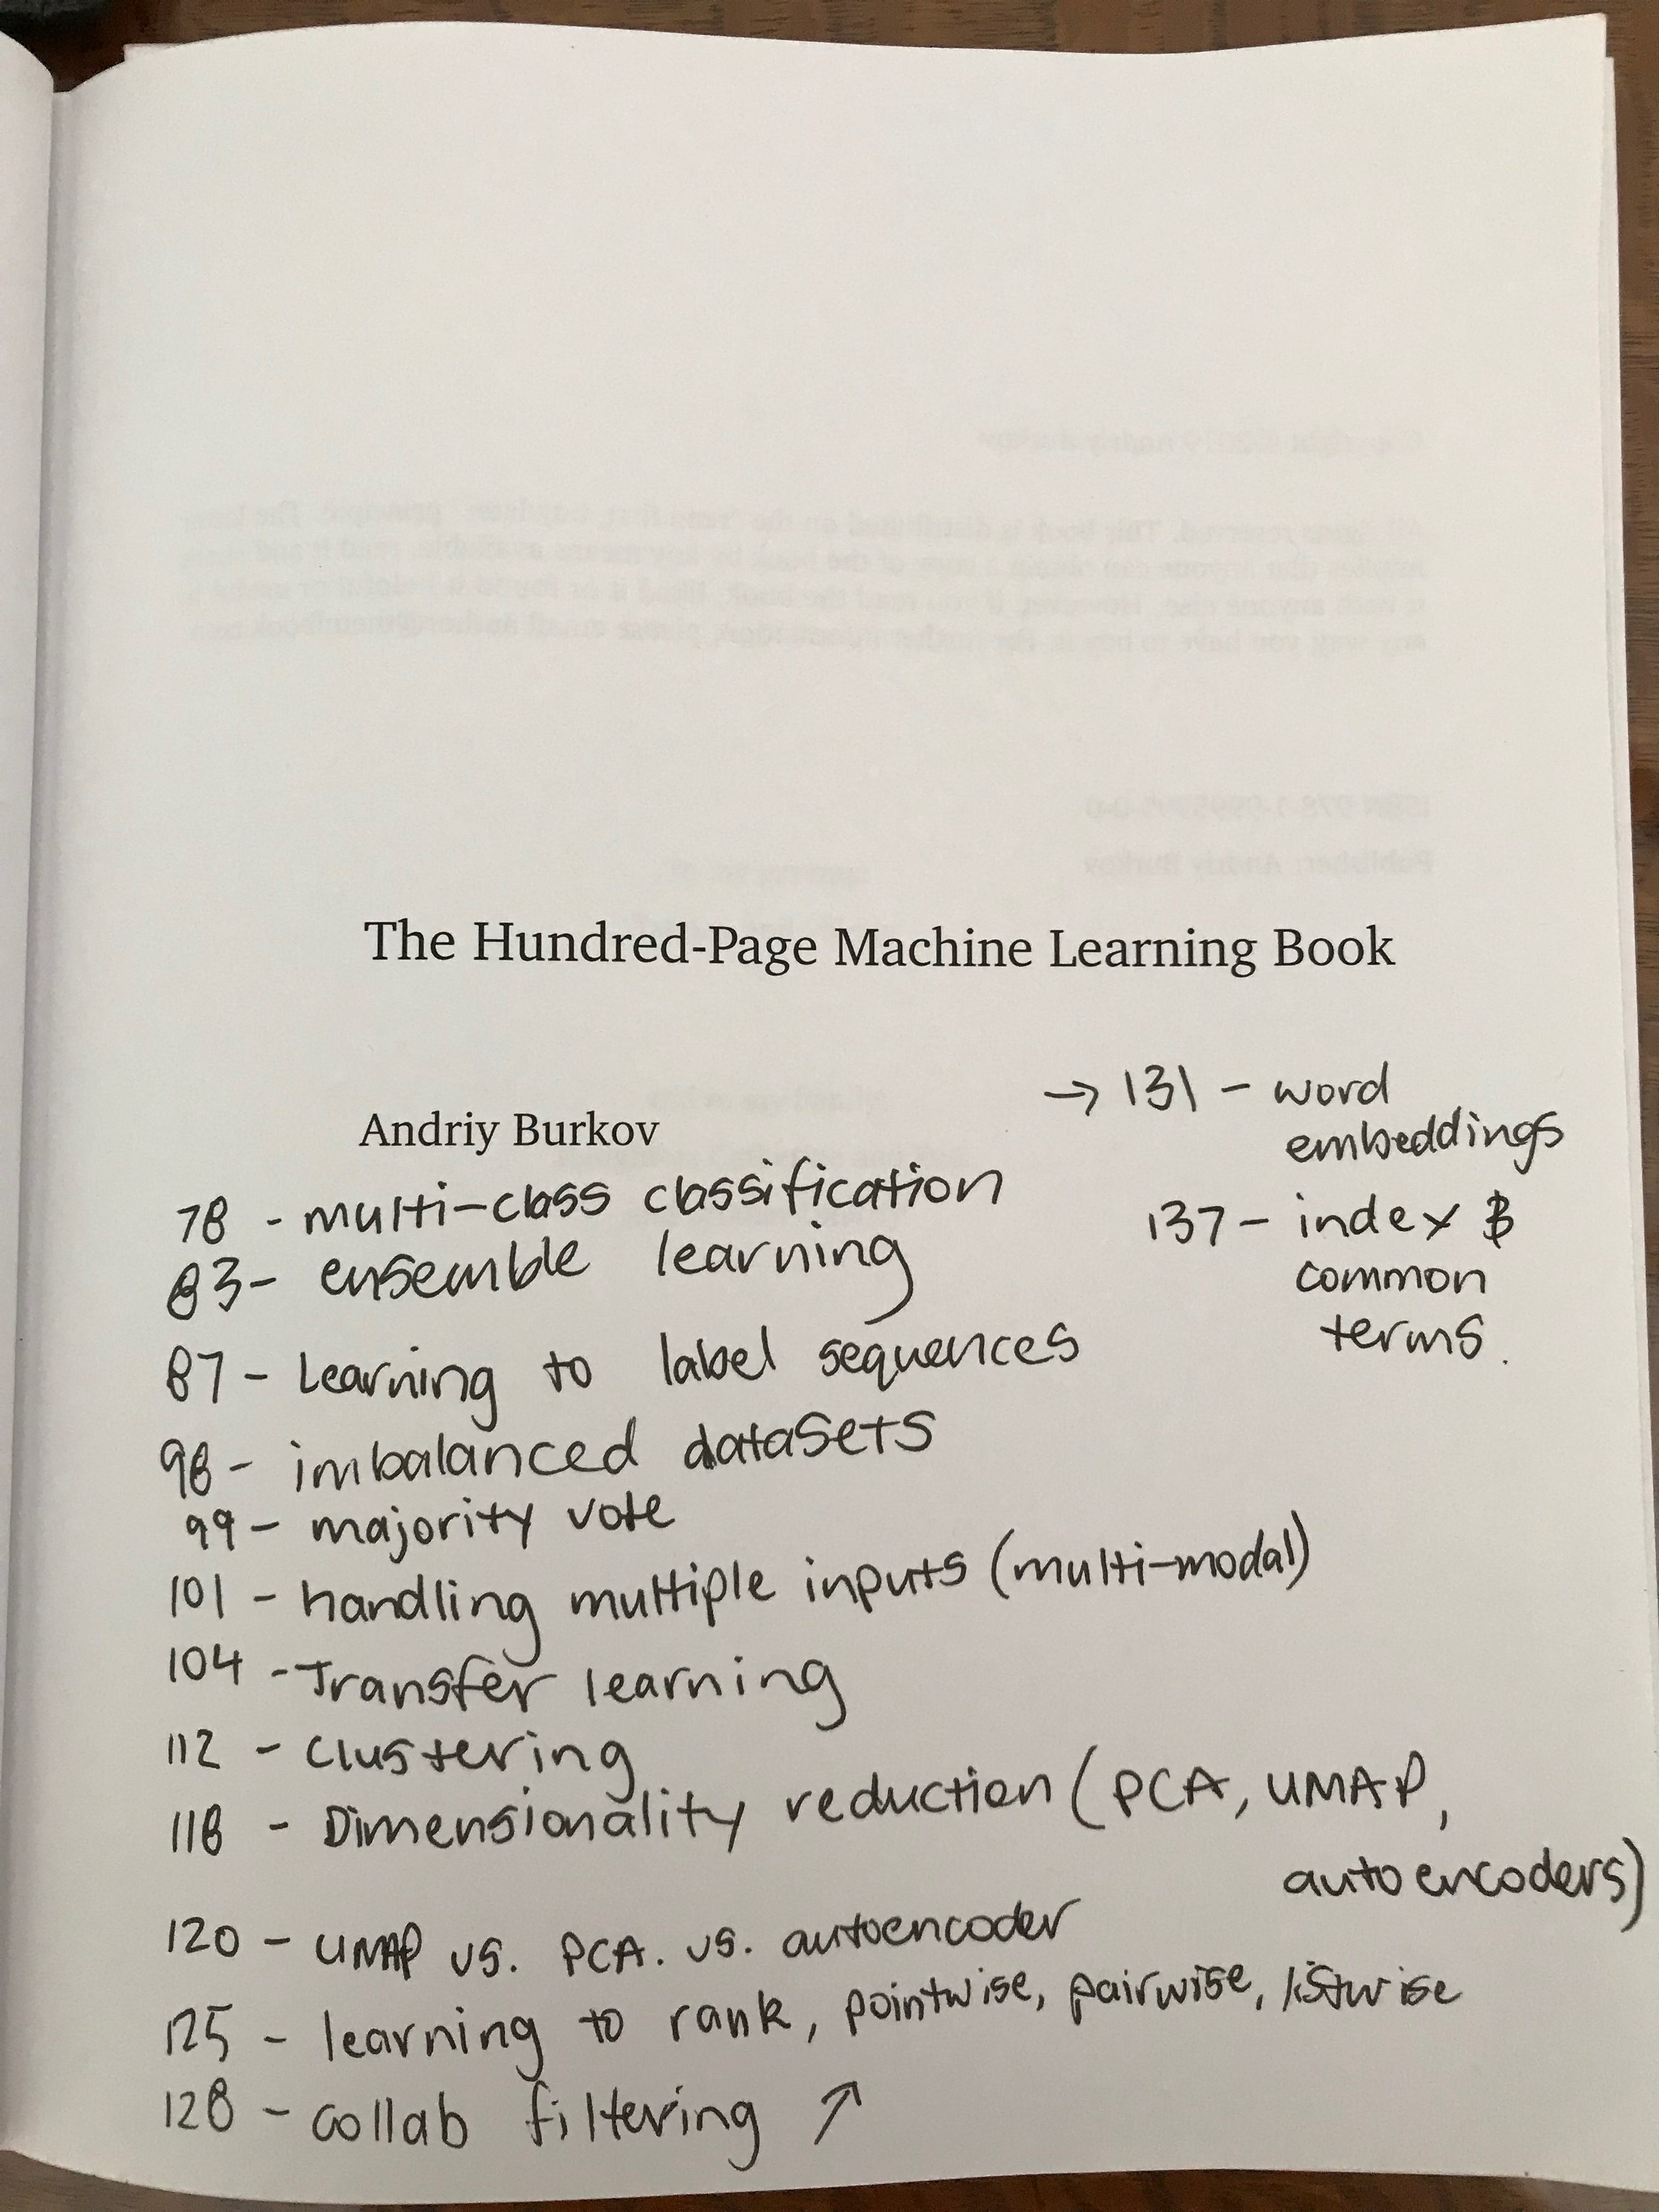 The Hundred-Page Machine Learning Book
Andriy Burkov
78 - multi-class classification
83 - ensemble learning
87 - Learning to label sequences
98 - imbalanced datasets
99 - majority vote
101 - handling multiple inputs (multi-modal)
104 - Transfer learning
112 - clustering
118 - Dimensionality reduction (PCA, UMAP,
autoencoders)
120 - UMAP vs. PCA. vs. autoencoder
125 - learning to rank, pointwise, pairwise, listwise
128 - collab filtering ↗
→ 131 - word
embeddings
137 - index &
common
terms.